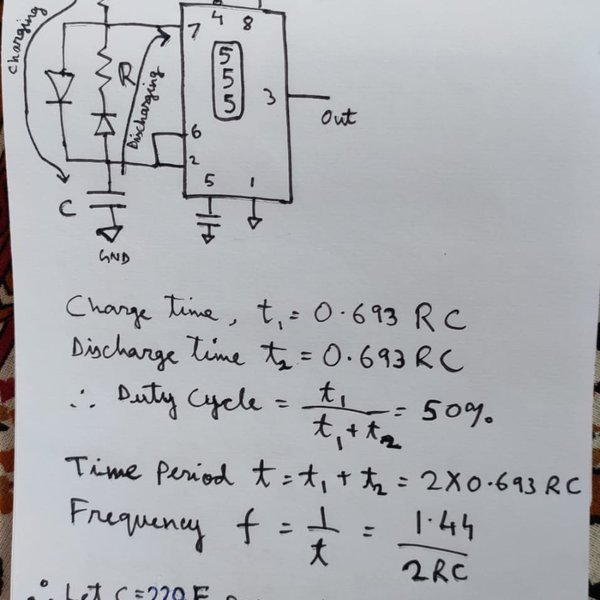 Charging
4 8
7
R
Discharging
5
5
5
3
Out
6
2
5 1
C
GND
Charge time, t₁ = 0.693 RC
Discharge time t₂ = 0.693 RC
∴ Duty Cycle = t₁/(t₁+t₂) = 50%.
Time Period t = t₁ + t₂ = 2X0.693 RC
Frequency f = 1/t = 1.44/2RC
Let C = 220